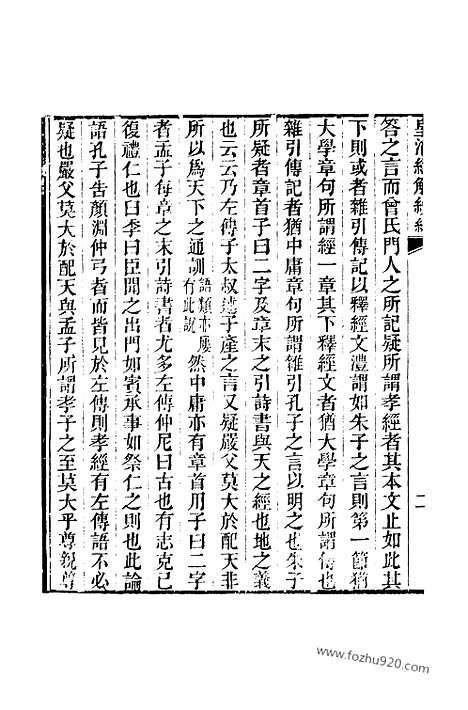 皇清經解續編
二
答之言而曾氏門人之所記疑所謂孝經者其本文止如此其
下則或者雜引傳記以釋經文澧謂如朱子之言則第一節猶
大學章句所謂經一章其下釋經文者猶大學章句所謂傳也
雜引傳記者猶中庸章句所謂雜引孔子之言以明之也朱子
所疑者章首子曰二字及章末之引詩書與天之經也地之義
也云云乃左傳子太叔述子產之言又疑嚴父莫大於配天非
所以為天下之通訓語類亦屢有此說然中庸亦有章首用子曰二字
者孟子每章之末引詩書者尤多左傳仲尼曰古也有志克己
復禮仁也臼季曰臣聞之出門如賓承事如祭仁之則也此論
語孔子告顏淵仲弓者而皆見於左傳則孝經有左傳語不必
疑也嚴父莫大於配天與孟子所謂孝子之至莫大乎尊親尊
www.fozhu920.com